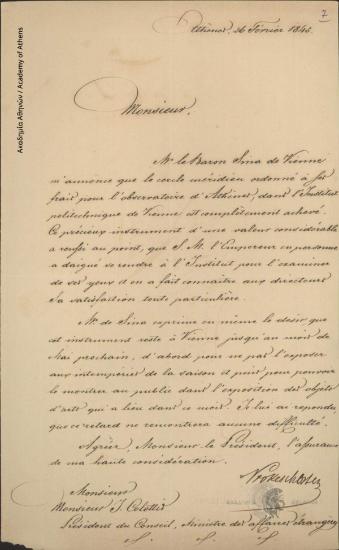 7
Athènes, 26 Février 1845.
Ακαδημία Αθηνών / Academy of Athens
Monsieur,
Mr. le Baron Sina de Vienne
m'annonce que le cercle méridien ordonné à ses
frais pour l'observatoire d'Athènes, dans l'Institut
politechnique de Vienne est complètement achevé.
Ce précieux instrument d'une valeur considérable
a réussi au point, que S. M. l'Empereur en personne
a daigné se rendre à l'Institut pour l'examiner
de ses yeux il en a fait connaître aux directeurs
Sa satisfaction toute particulière.
Mr. de Sina exprime en même le désir que
cet instrument reste à Vienne jusqu'au mois de
Mai prochain, d'abord pour ne pas l'exposer
aux intempéries de la saison et puis pour pouvoir
le montrer au public dans l'exposition des objets
d'arts qui a lieu dans ce mois. Je lui ai répondu
que ce retard ne rencontrera aucune difficulté.
Agréez, Monsieur le Président, l'assurance
de ma haute considération.
Prokesch Osten
Monsieur
Monsieur J. Colettis
Président du Conseil, Ministre des affaires étrangères